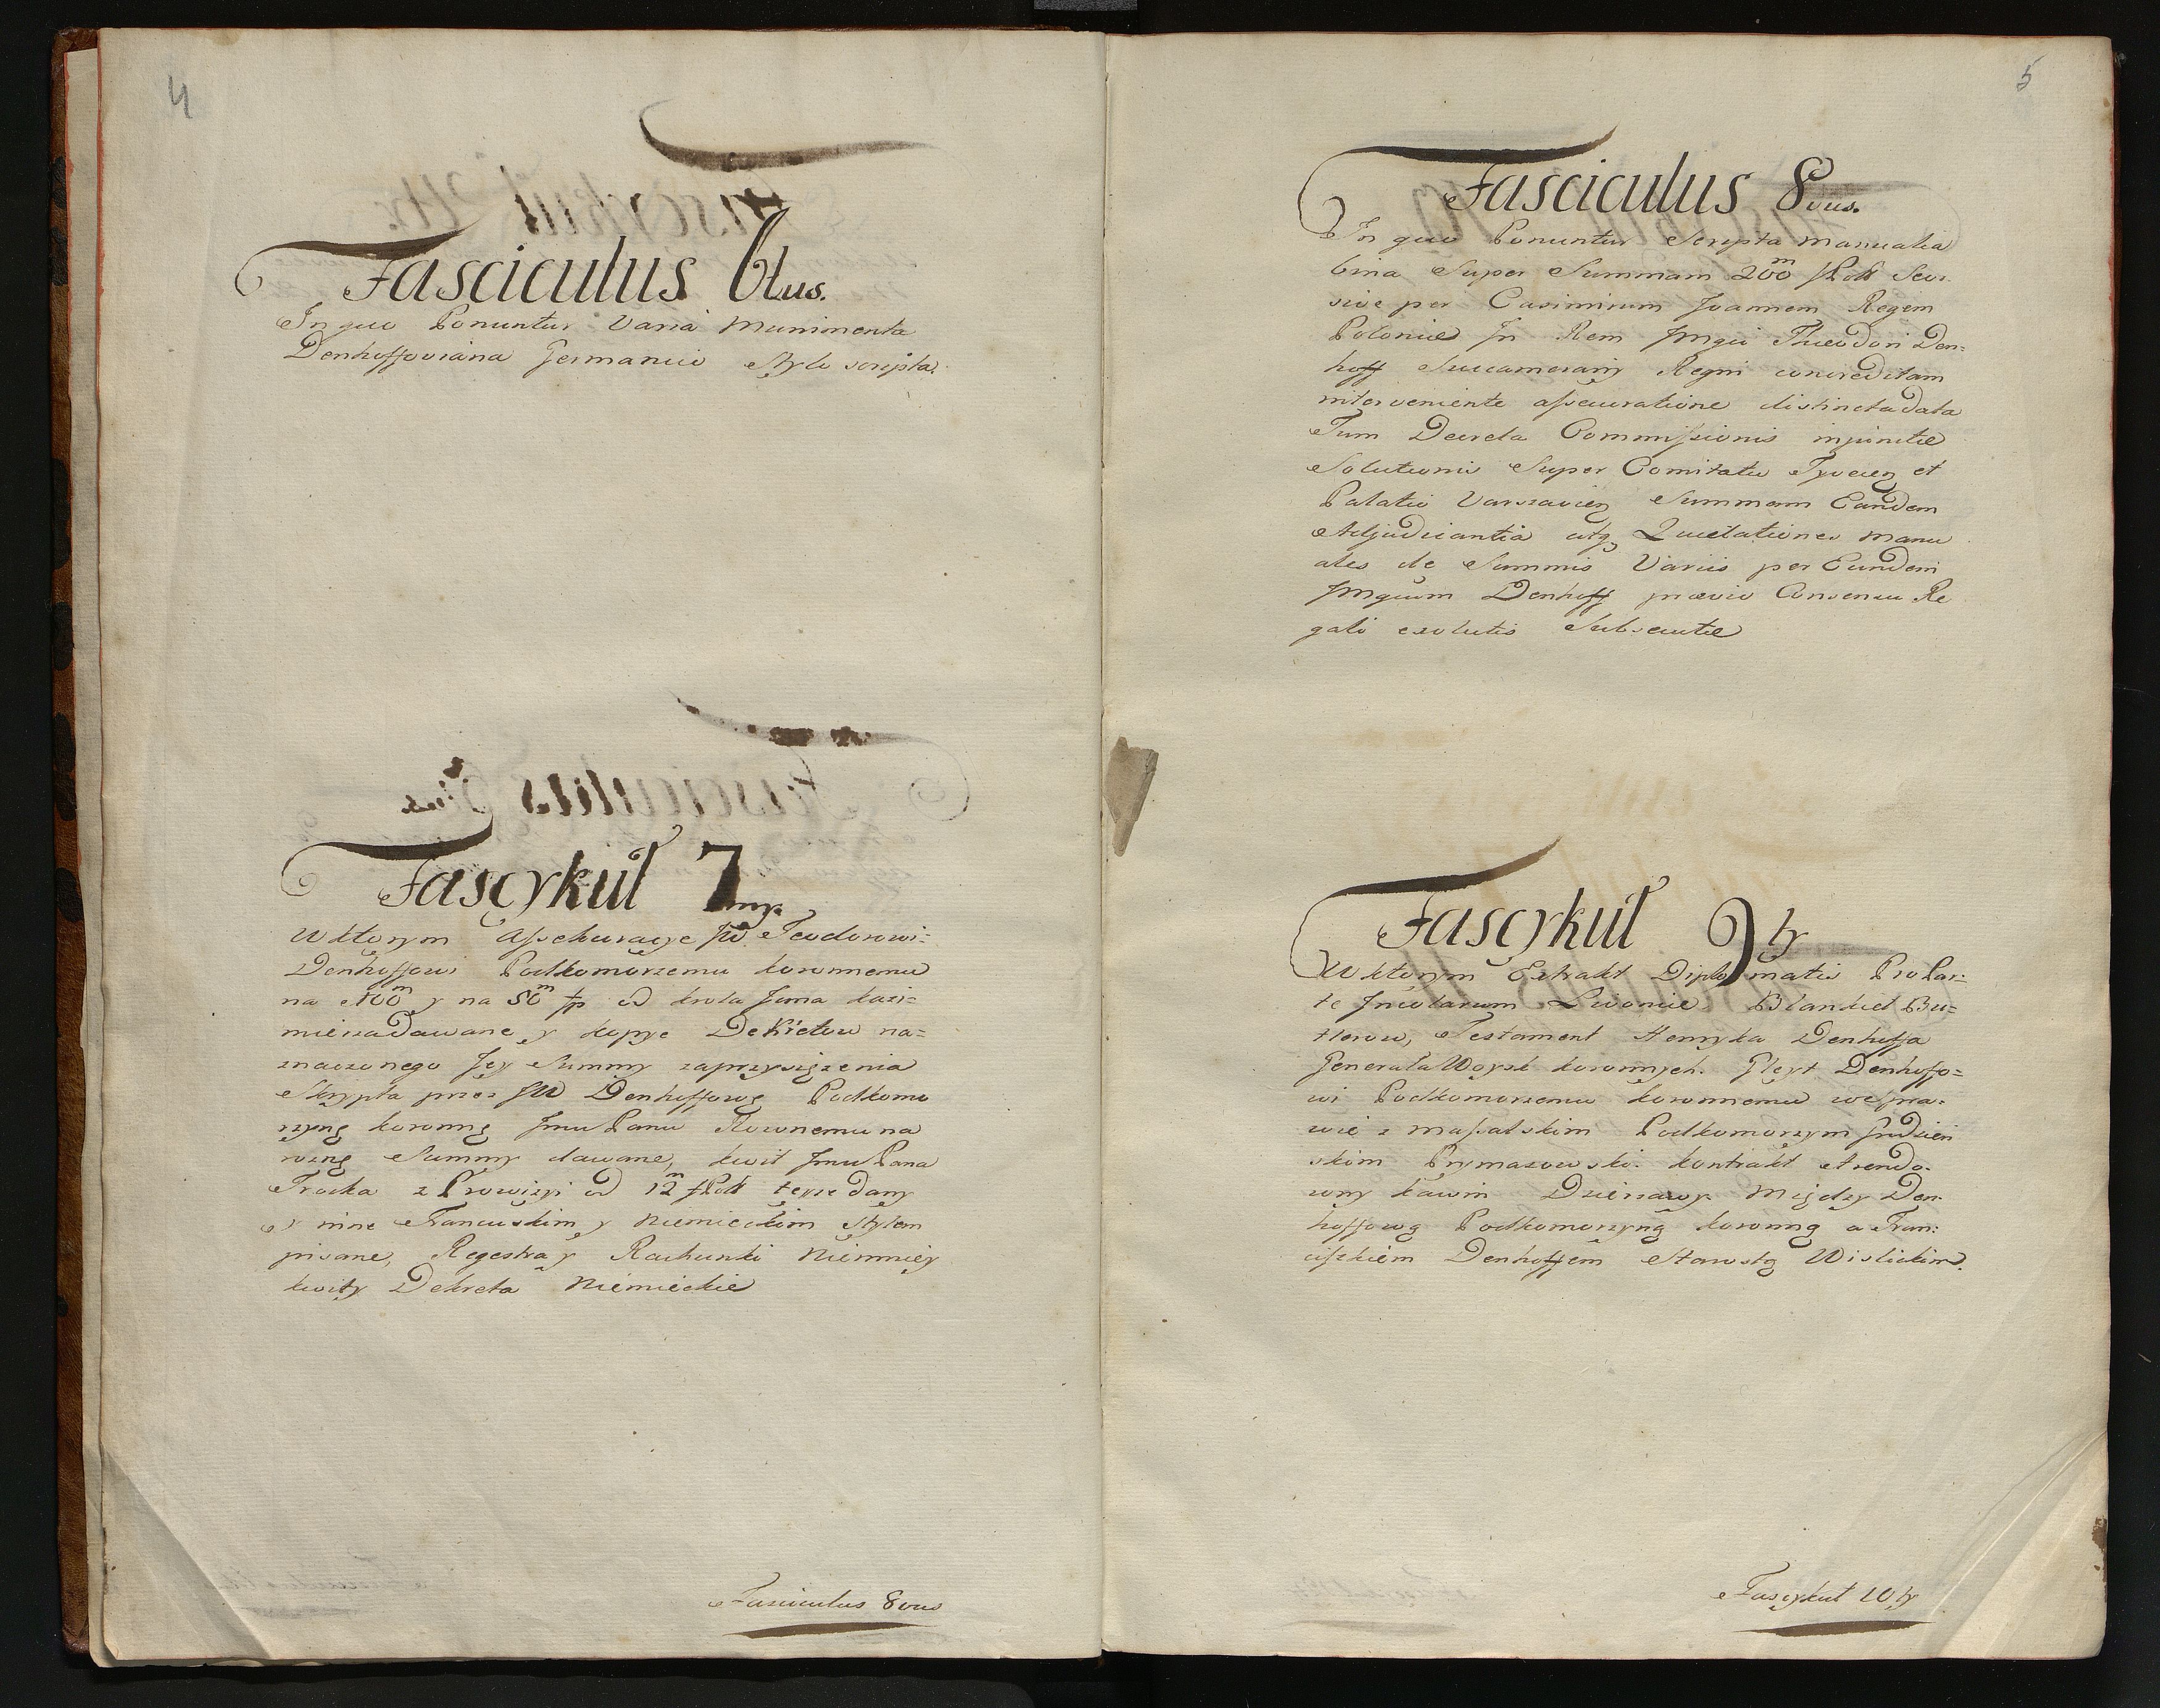 4
Fasciculus 6tus.
In quo Ponuntur Varia Munimenta
Denhoffoviana Germanico Stylo scripta.
Fascykuł 7my.
W ktorym Assekuracye JW. Teodorowi=
Denhoffowi Podkomorzemu koronnemu
na 100m y na 50m fp od krola Jana kazi=
mierza dawane, y kopye Dekretow na=
znaczonego Jey Summy zaprzysiężenia
Skrypta przez JW Denhoffową Podkomo
rzyną koronną Jmu Panu na
rożną Summy dawane, kwit Jmu Pana
Trocka z Prowizyi od 12m fPoll teyże dany
y inne Francuskim y Niemieckim Stylem
pisane, Regestra y Rachunki Niemniey
kwity Dekreta Niemieckie
Fasciculus 8vus
5
Fasciculus 8vus.
In quo Ponuntur Scripta Manualia
bina Super Summam 200m fPoll Seor
sive per Casimirum Joannem Regem
Poloniæ In Rem Mgci Theodori Den=
hoff Succamerarij Regni concreditam
interveniente assecuratione distincta data
Tum Decreta Commissionis injunctæ
Solutionis Super Comitatu Tyocien et
Palatio Varsavien Summam Eandem
Adjudicantia atq Quietationes Manu
ales de Summis Variis per Eundem
Mgcum Denhoff prævio Consensu Re
gali exolutis Subsecutæ
Fascykuł 9ty
W ktorym Extrakt Diplomatis Pro Par=
te Incolarum Livoniæ. Blankiet Bu=
tlerow, Testament Henryka Denhoffa
Generała Woysk koronnych. Gleyt Denhoffo=
wi Podkomorzemu koronnemu w spra=
wie z Massalskim Podkomorzym Grodzień
skim kontrakt Arendo=
wny Dzierzawy Między Den=
hoffową Podkomorzyną koronną a Fran=
ciszkiem Denhoffem Starostą Wislickim.
Fascykuł 10ty